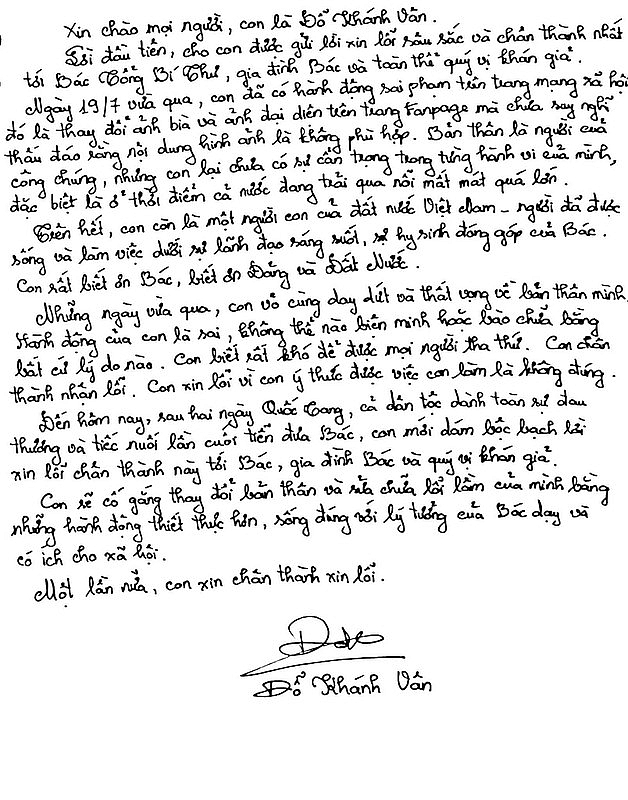 Xin chào mọi người, con là Đỗ Khánh Vân.
Lời đầu tiên, cho con được gửi lời xin lỗi sâu sắc và chân thành nhất
tới Bác Tổng Bí Thư, gia đình Bác và toàn thể quý vị khán giả.
Ngày 19/7 vừa qua, con đã có hành động sai phạm trên trang mạng xã hội
đó là thay đổi ảnh bìa và ảnh đại diện trên trang Fanpage mà chưa suy nghĩ
thấu đáo rằng nội dung hình ảnh là không phù hợp. Bản thân là người của
công chúng, nhưng con lại chưa có sự cẩn trọng trong từng hành vi của mình,
đặc biệt là ở thời điểm cả nước đang trải qua nỗi mất mát quá lớn.
Trên hết, con còn là một người con của đất nước Việt Nam - người đã được
sống và làm việc dưới sự lãnh đạo sáng suốt, sự hy sinh đóng góp của Bác.
Con rất biết ơn Bác, biết ơn Đảng và Đất Nước.
Những ngày vừa qua, con vô cùng day dứt và thất vọng về bản thân mình.
Hành động của con là sai, không thể nào biện minh hoặc bào chữa bằng
bất cứ lý do nào. Con biết rất khó để được mọi người tha thứ. Con chân
thành nhận lỗi. Con xin lỗi vì con ý thức được việc con làm là không đúng.
Đến hôm nay, sau hai ngày Quốc Tang, cả dân tộc dành toàn sự đau
thương và tiếc nuối lần cuối tiễn đưa Bác, con mới dám bộc bạch lời
xin lỗi chân thành này tới Bác, gia đình Bác và quý vị khán giả.
Con sẽ cố gắng thay đổi bản thân và sửa chữa lỗi lầm của mình bằng
những hành động thiết thực hơn, sống đúng với lý tưởng của Bác dạy và
có ích cho xã hội.
Một lần nữa, con xin chân thành xin lỗi.
Đỗ Khánh Vân